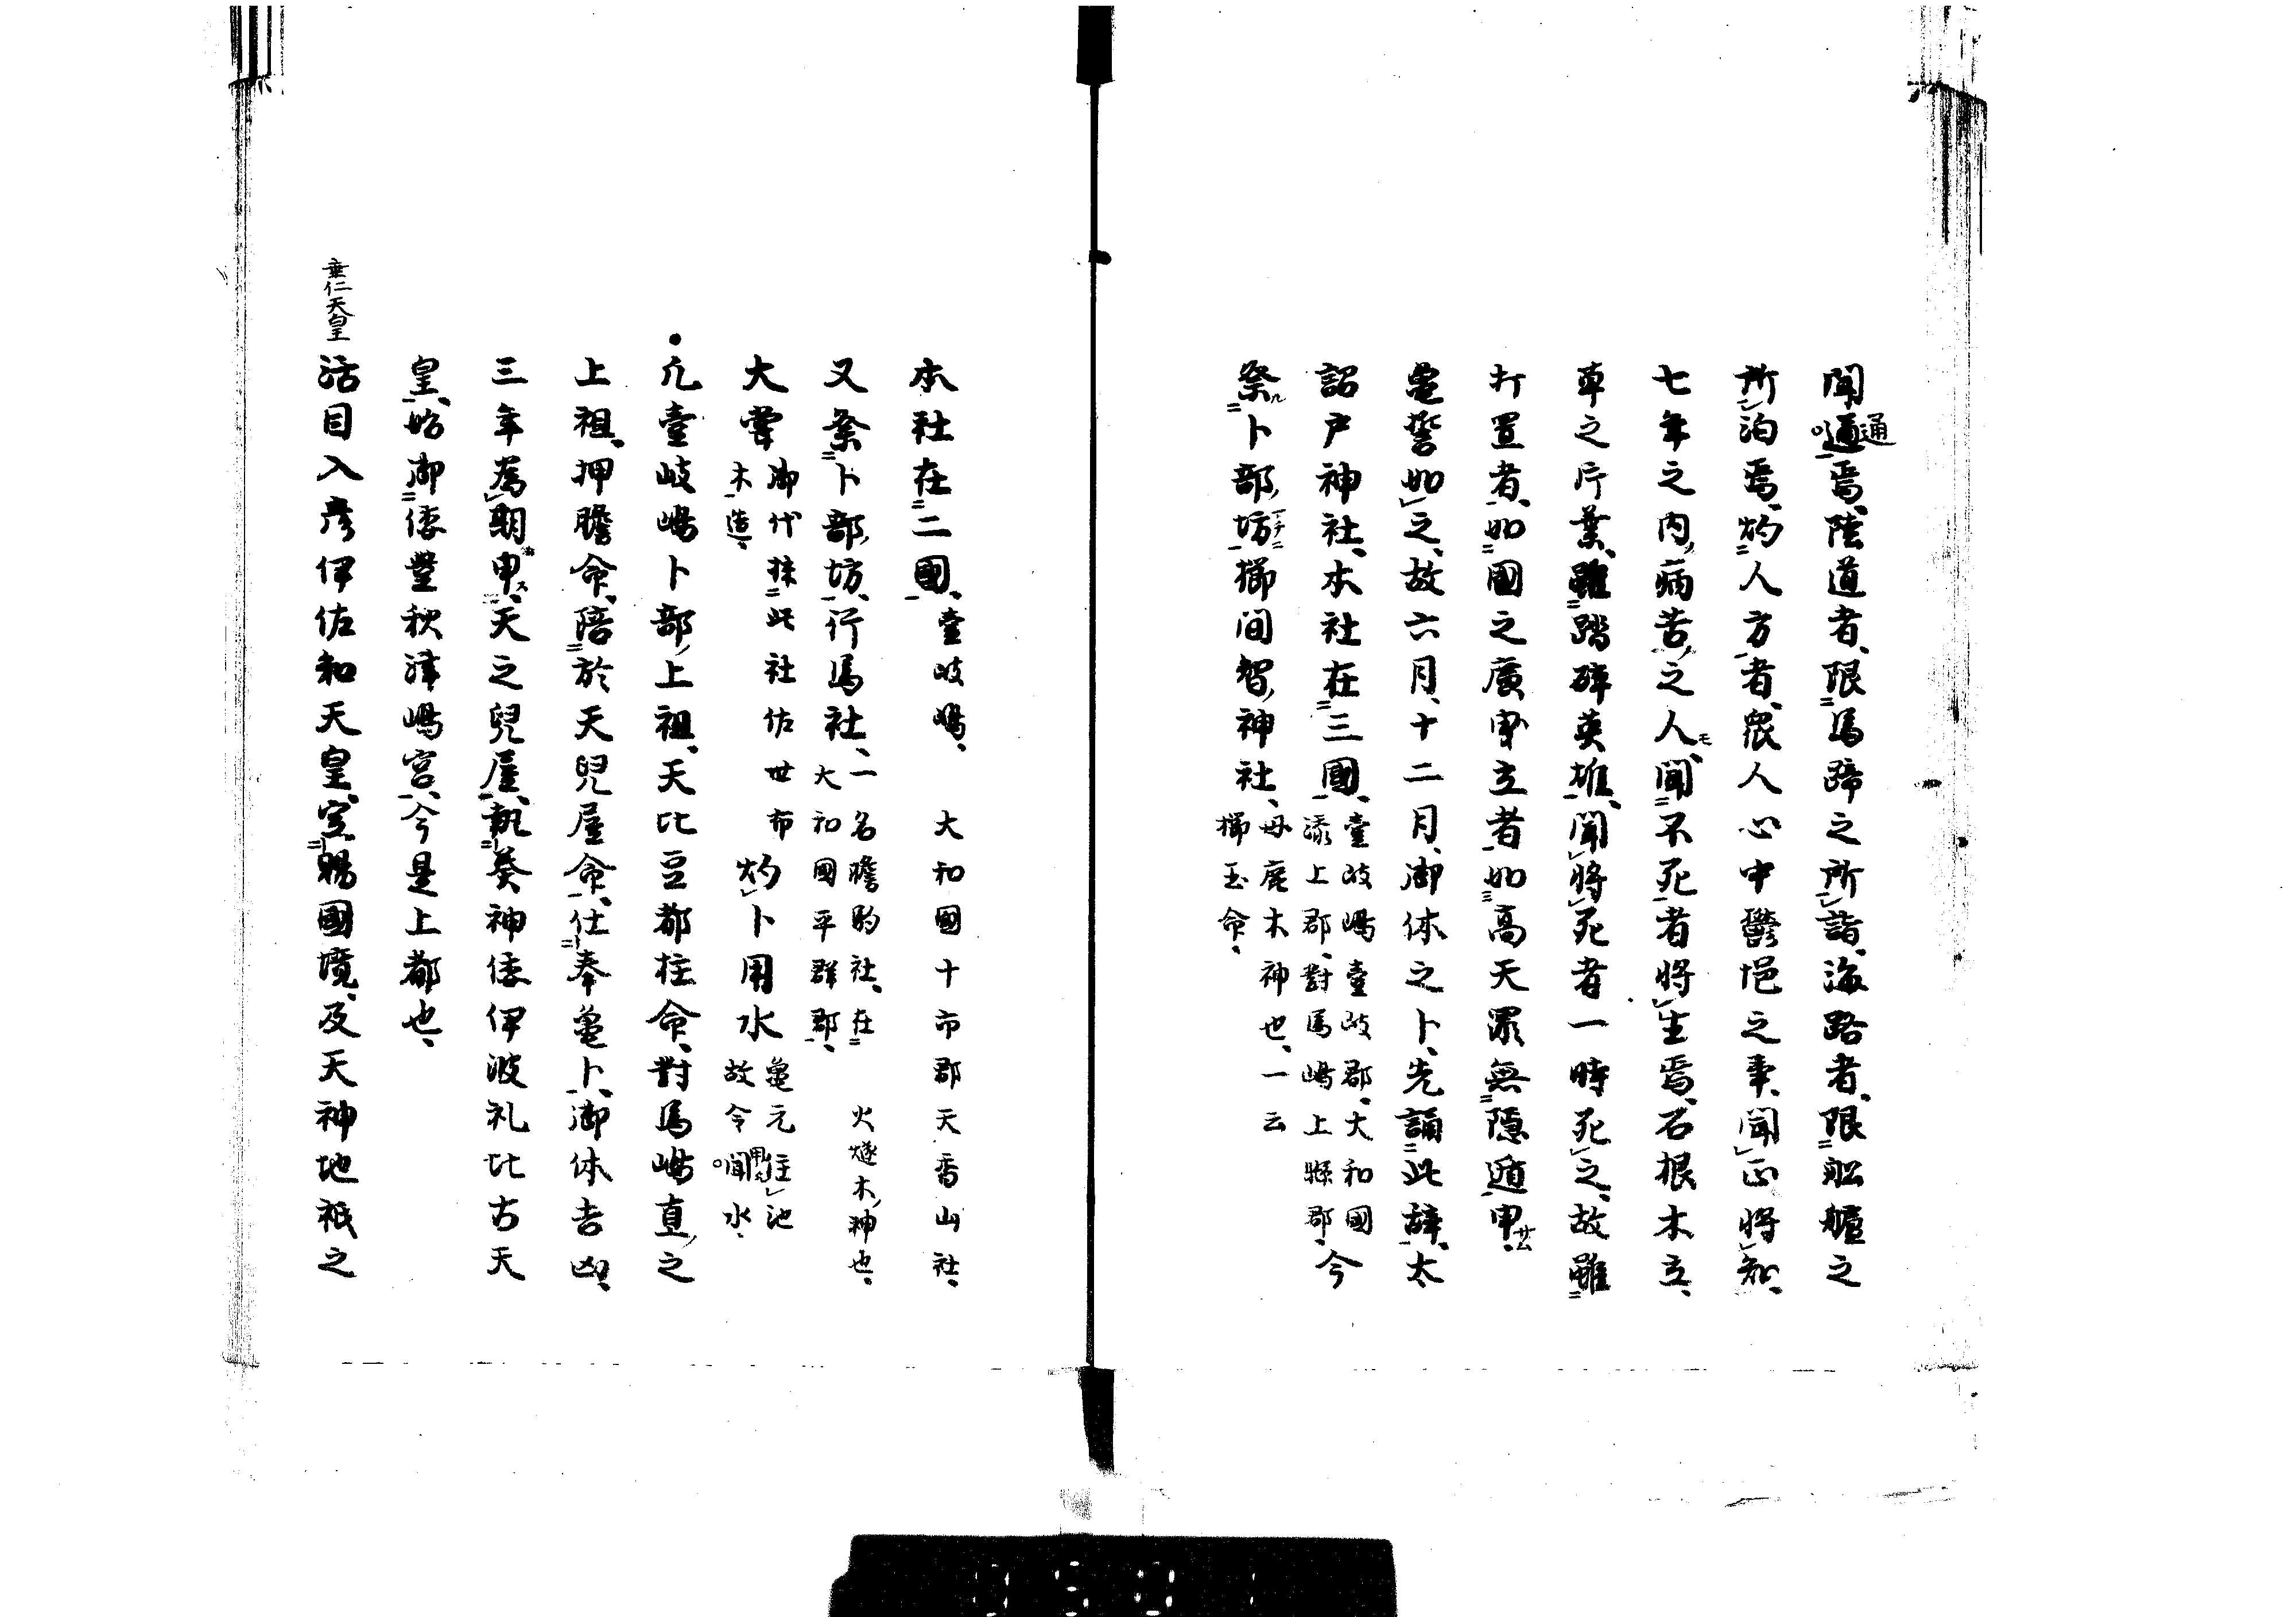 聞通焉、陸道者、限馬蹄之所詣、海路者、限舩艫之
通
所泊焉、灼人方者、衆人心中鬱悒之事、聞正将知、
七年之内、病苦之人、聞不死者将生焉、石根木立、
モ
草之片葉、雖踏碎英雄、聞将死者一時死之、故雖
打置者、如國之廣曳立者、如高天雲無隠遁申、
龜誓如之、故六月、十二月、御体之卜、先誦此辞、太
詔戸神社、本社在三國、
壹岐嶋壹岐郡、大和國
添上郡、對馬嶋上縣郡、
今
祭卜部坊櫛間智神社、
母鹿木神也、一云
櫛玉命、
本社在二國、壹岐嶋、大和國十市郡天香山社、
又祭卜部坊、行馬社、
一名膽駒社、在
大和國平群郡、
火燧木神也、
大嘗
御代
木造、
採此社佐世布
灼卜用水
龜元住池
故令聞水、
凢壹岐嶋卜部上祖、天比豆都柱命、對馬嶋直之
上祖、押膽命、陪於天兒屋命、仕奉龜卜、御体吉凶、
三年為期申、天之兒屋、執奏神倭伊波礼比古天
皇、始御倭豊秋津嶋宮、今是上都也、
垂仁天皇
活目入彦伊佐知天皇、定賜國境、及天神地祇之